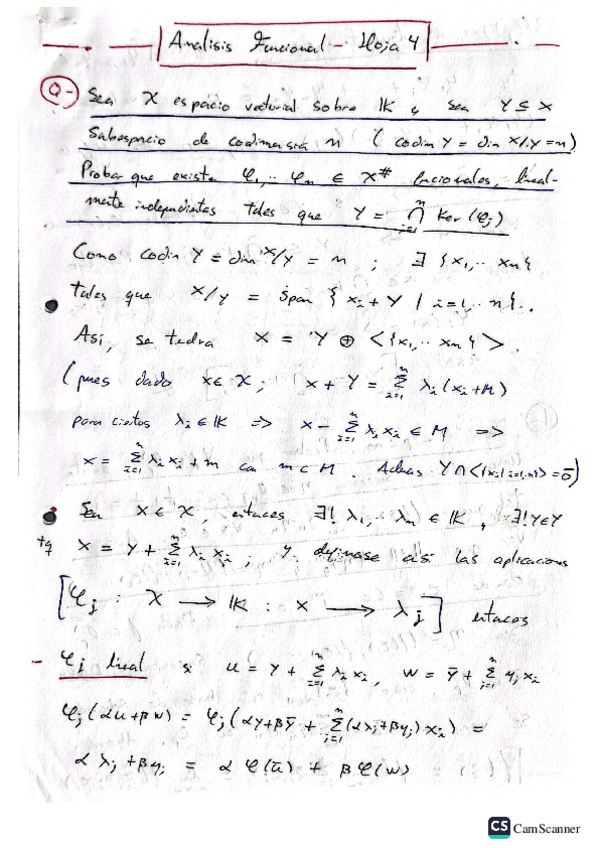 Analisis Funcional - Hoja 4
0- Sea X espacio vectorial sobre IK y sea Y ≤ X
Subespacio de codimension n ( codim Y = dim X/Y = n )
Probar que existen φ1, ·· φn ∈ X# funcionales, lineal-
mente independientes tales que Y = ⋂_{i=1}^{n} Ker (φj)
Como codim Y = dim X/Y = n ; ∃ {x1, ·· xn}
tales que X/Y = Span { xi + Y / i=1, ·· n }.
Así, se tendra X = Y ⊕ < {x1, ·· xn} > .
( pues dado x ∈ X ; x + Y = ∑_{i=1}^{n} λi (xi + M)
para ciertos λi ∈ IK => x - ∑_{i=1}^{n} λi xi ∈ M =>
x = ∑_{i=1}^{n} λi xi + m con m ∈ M . Ademas Y ∩ <{xi / i=1,··n}> = ō )
Sea x ∈ X, entonces ∃! λ1, ·· λn ∈ IK, ∃! y ∈ Y
tq x = y + ∑_{i=1}^{n} λi xi ; y definase asi las aplicaciones
[ φj : X → IK : x → λj ] entonces
- φj lineal si u = y + ∑_{i=1}^{n} λi xi, w = ȳ + ∑_{j=1}^{n} ηj xi
φj (αu + βw) = φj (αy + βȳ + ∑_{j=1}^{n} (αλj + βηj) xi ) =
αλj + βηj = α φ(ū) + β φ(w)
CS CamScanner